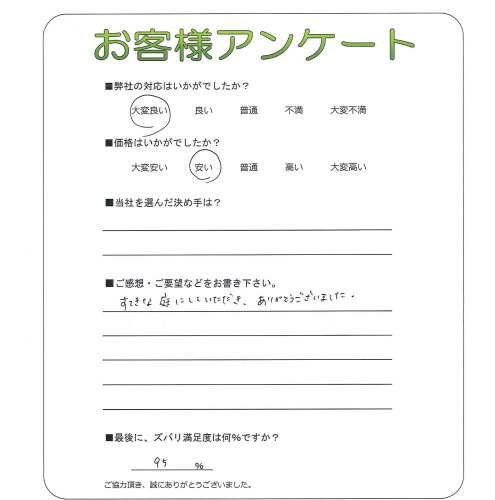 お客様アンケート
■弊社の対応はいかがでしたか？
大変良い 良い 普通 不満 大変不満
■価格はいかがでしたか？
大変安い 安い 普通 高い 大変高い
■当社を選んだ決め手は？
■ご感想・ご要望などをお書き下さい。
すてきな庭にしていただき、ありがとうございました。
■最後に、ズバリ満足度は何%ですか？
95 %
ご協力頂き、誠にありがとうございました。